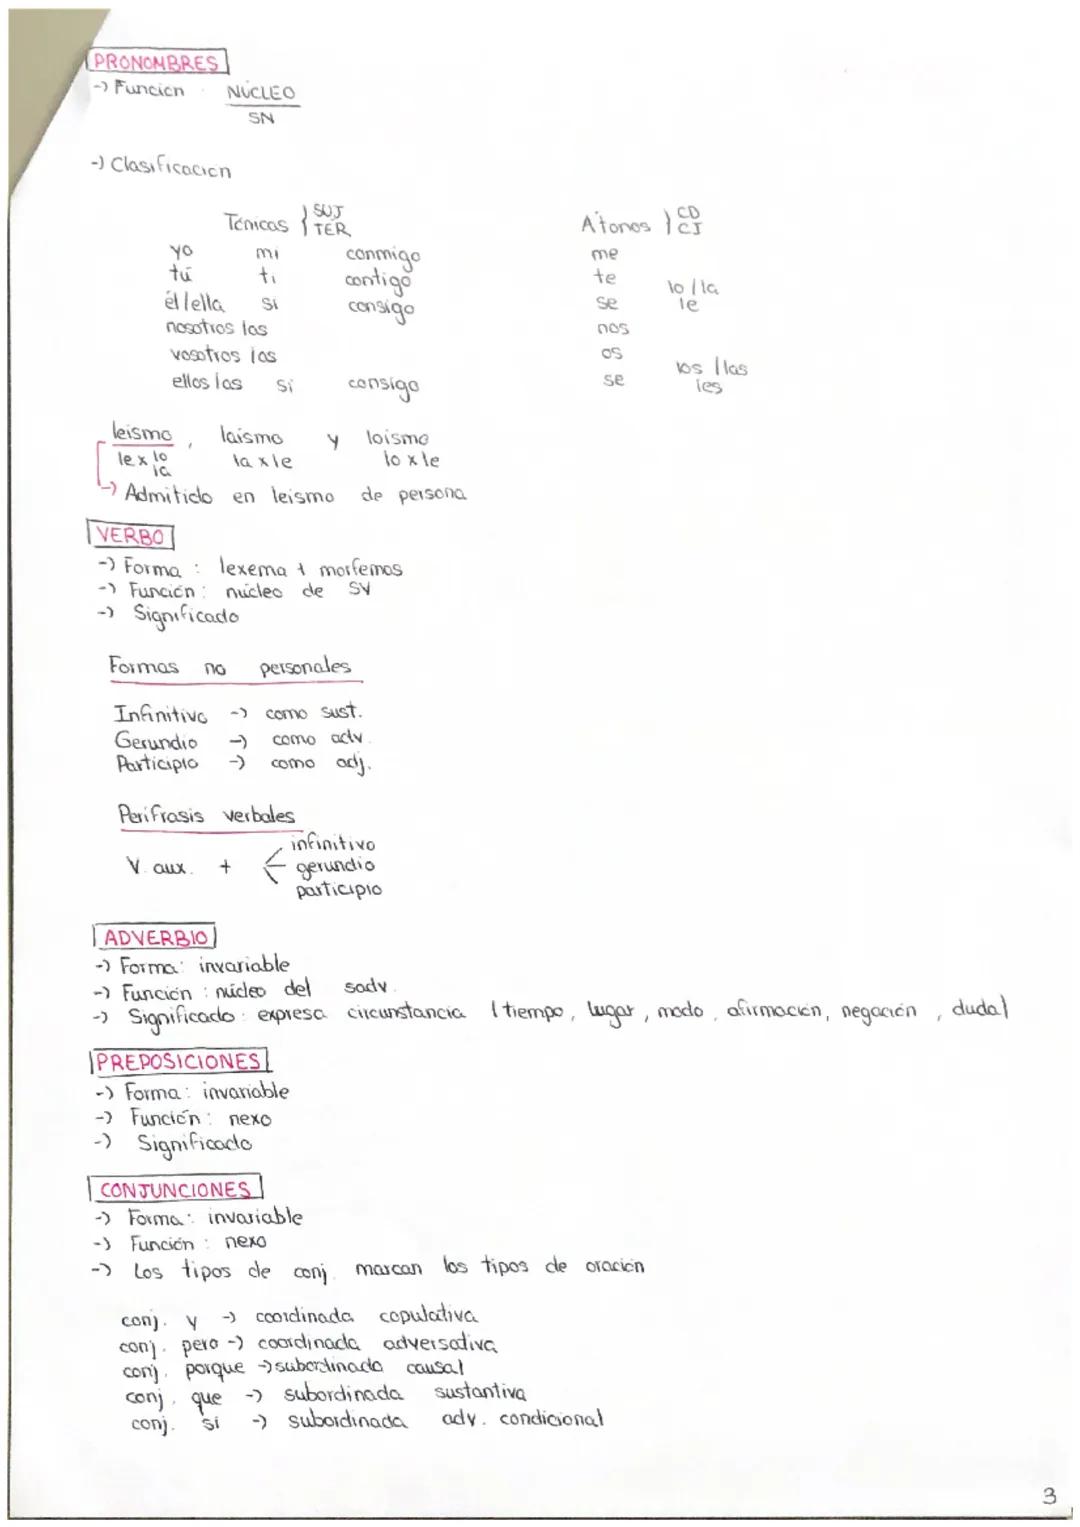 PRONOMBRES
-> Función : NÚCLEO
SN
-> Clasificación
Tónicas } SUJ TER
Átonos } CD CI
yo mi conmigo
me
tú ti contigo
te lo / la
él/ella si consigo
se le
nosotros /as
nos
vosotros /as
os los / las
ellos /as sí consigo
se les
leísmo, laísmo y loísmo
le x lo la
la x le
lo x le
-> Admitido en leísmo de persona
VERBO
-> Forma : lexema + morfemas
-> Función : núcleo de SV
-> Significado
Formas no personales
Infinitivo -> como sust.
Gerundio -> como adv.
Participio -> como adj.
Perífrasis verbales
infinitivo
V. aux. + gerundio
participio
ADVERBIO
-> Forma: invariable
-> Función : núcleo del sadv.
-> Significado : expresa circunstancia (tiempo, lugar, modo, afirmación, negación, duda)
PREPOSICIONES
-> Forma : invariable
-> Función : nexo
-> Significado
CONJUNCIONES
-> Forma : invariable
-> Función : nexo
-> Los tipos de conj. marcan los tipos de oración
conj. y -> coordinada copulativa
conj. pero -> coordinada adversativa
conj. porque -> subordinada causal
conj. que -> subordinada sustantiva
conj. si -> subordinada adv. condicional
3